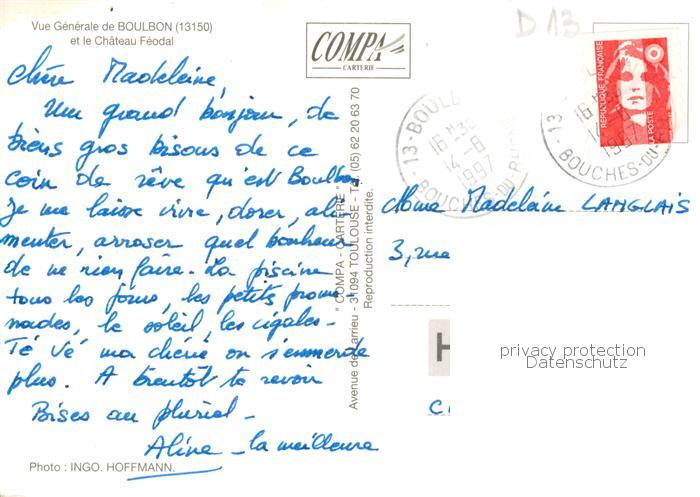 Vue Générale de BOULBON (13150)
et le Château Féodal
COMPA
CARTERIE
D 13
RÉPUBLIQUE FRANÇAISE
LA POSTE
13 - BOULB
16 H 30
14 - 8
1997
BOUCHES-DU-RHÔNE
16 H
14 - 8
1997
BOUCHES-DU-
Chère Madeleine,
Un grand bonjour, de
biens gros bisous de ce
coin de rêve qu'est Boulbon.
Je me laisse vivre, dorer, ali
menter, arroser quel bonheur
de ne rien faire. La piscine
tous les jours, les petits prome
nades, le soleil, les cigales -
Té Vé ma chérie on s'emmerde
plus. A bientôt te revoir
Bises au pluriel -
Aline - la meilleure
Photo : INGO. HOFFMANN.
" COMPA - CARTERIE "
Avenue de Larrieu - 31094 TOULOUSE - Tél. (05) 62 20 63 70
Reproduction interdite.
Mme Madeleine LANGLAIS
3, rue
H
privacy protection
Datenschutz
C